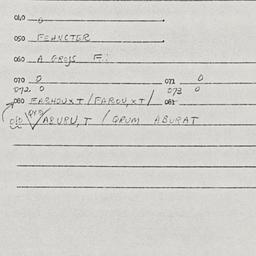 040 0
050 FEANCTER
060 A GROSS F:
070 0 071 0
072 0 073 0
080 FARHOUXT/FAROU,XT/ 081
090 ABURU,T / QRUM ABURAT